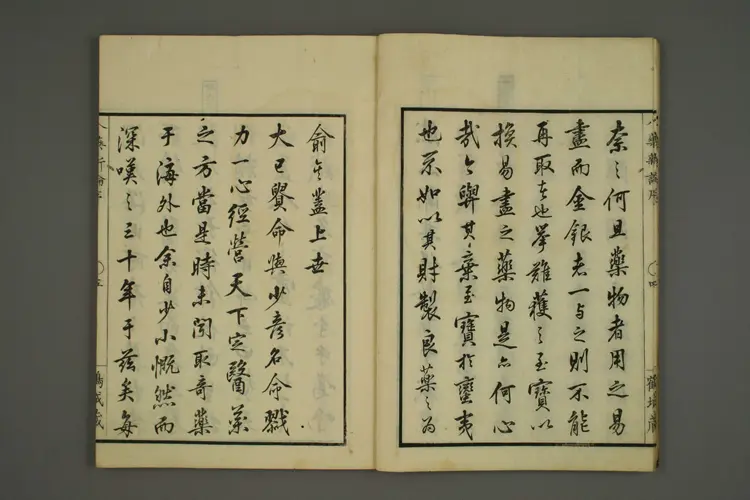 奈之何且藥物者用之易
盡而金銀者一与之則不能
再取者也挙難獲之至寶以
換易盡之藥物是亦何心
哉今與其棄至寶於蠻夷
也不如以其財製良藥之為
四
愈矣蓋上世
大已貴命與少彦名命戮
力一心經營天下定醫藥
之方當是時未聞取奇藥
于海外也余自少小慨然而
深嘆之三十年于茲矣每
五